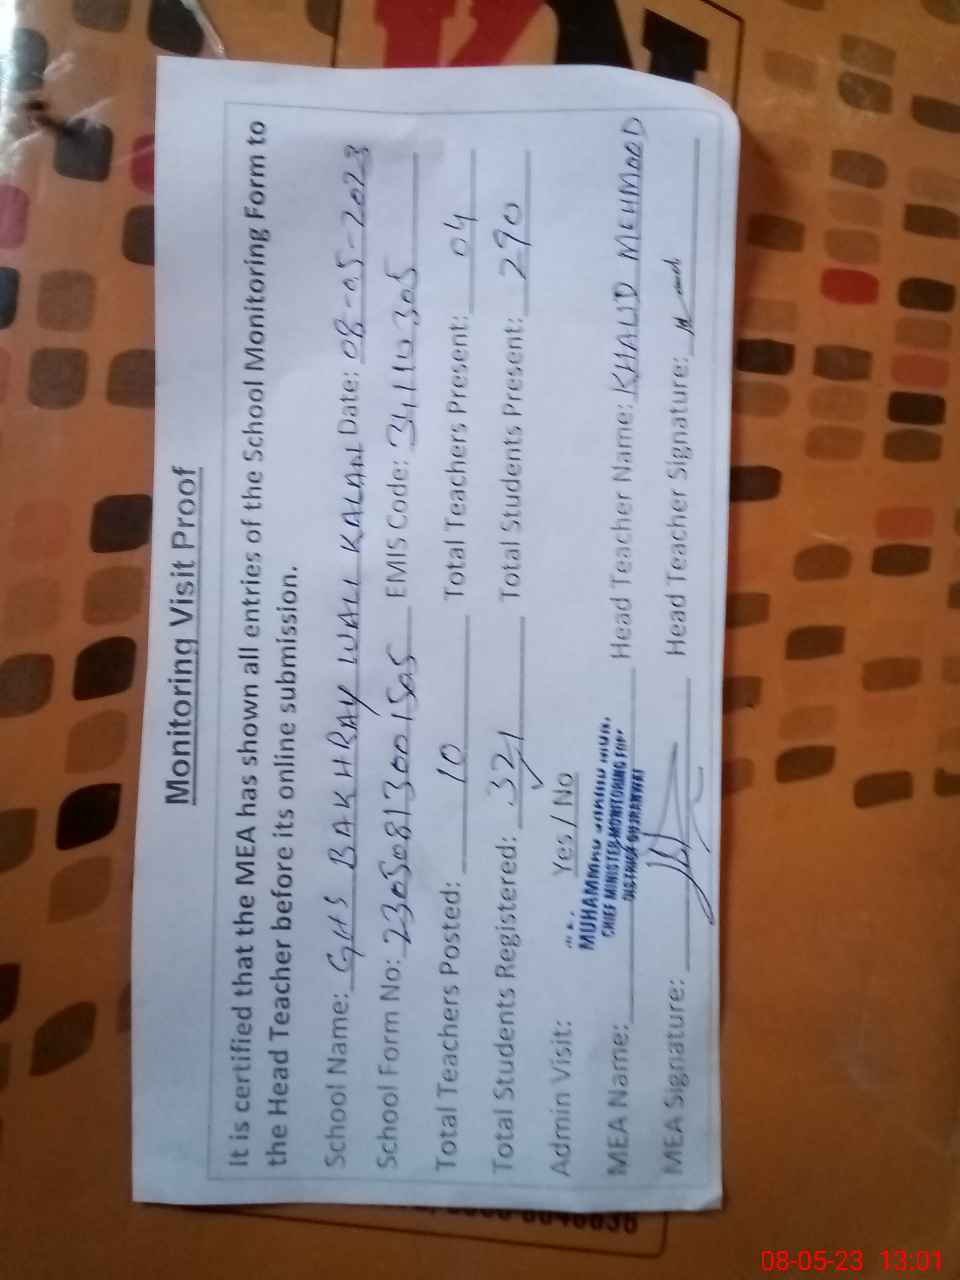 Monitoring Visit Proof
It is certified that the MEA has shown all entries of the School Monitoring Form to
the Head Teacher before its online submission.
School Name: GHS BAKHRAY WALI KALAN Date: 08-05-2023
School Form No: 23050813001505 EMIS Code: 34110305
Total Teachers Posted: 10 Total Teachers Present: 04
Total Students Registered: 321 Total Students Present: 290
Admin Visit: Yes / No
MUHAMMAD
CHIEF MINISTER MONITORING FOR
DISTRICT GUJRANWALA
MEA Name: Head Teacher Name: KHALID MEHMOOD
MEA Signature: Head Teacher Signature:
08-05-23 13:01